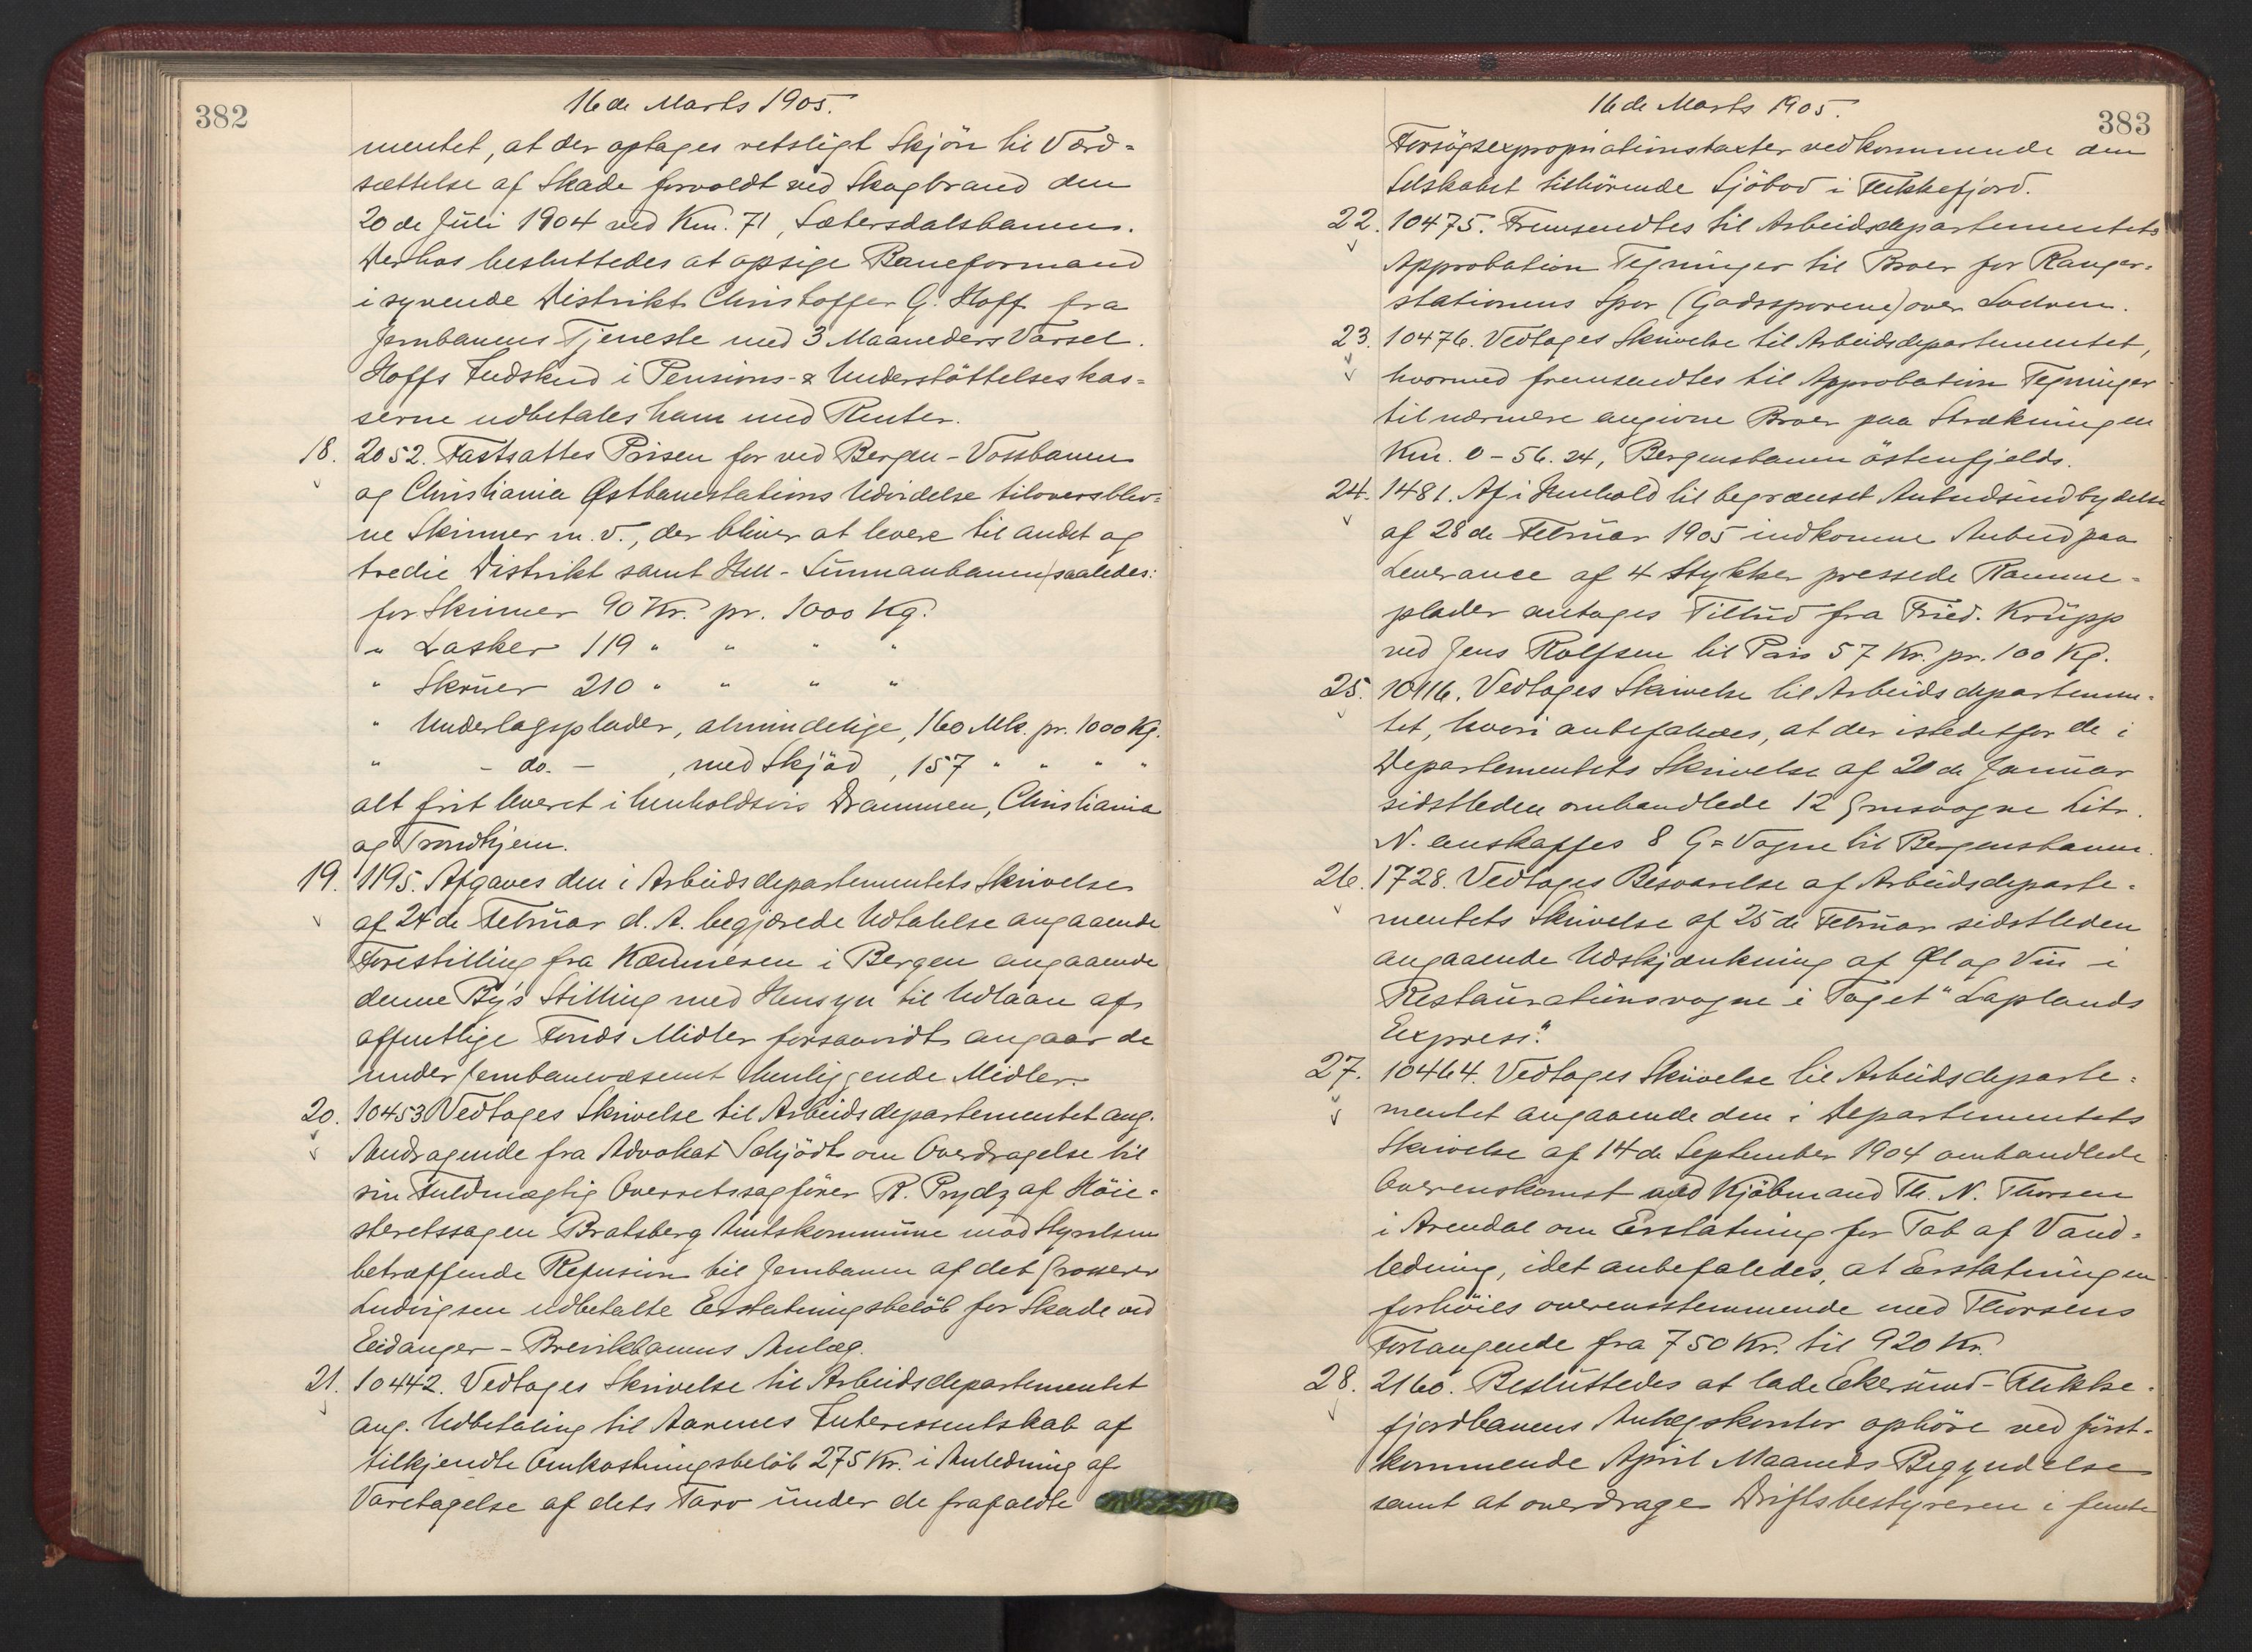 382
16de Marts 1905.
mentet, at der optages retsligt Skjön til Værd-
sættelse af Skade forvoldt ved Skogbrand den
20de Juli 1904 ved Km. 71, Sætersdalsbanen.
Derhos besluttedes at opsige Baneformand
i syvende Distrikt Christoffer G. Hoff fra
Jernbanens Tjeneste med 3 Maaneders Varsel.
Hoffs Indskud i Pensions- & Understöttelseskas-
serne udbetales ham med Renter.
18. 2052. Fastsattes Prisen for ved Bergen-Vossbanen
og Christiania Østbanestations Udvidelse tiloversblev-
ne Skinner m. v., der bliver at levere til andet og
tredie Distrikt samt Hell-Sunnanbanen saaledes:
for Skinner 90 Kr. pr. 1000 Kg.
" Lasker 119 " " " "
" Skruer 210 " " " "
" Underlagsplader, almindelige, 160 Mk. pr. 1000 Kg.
" - do. - , med Skjöd, 157 " " " "
alt frit leveret i henholdsvis Drammen, Christiania
og Trondhjem.
19. 1195. Afgaves den i Arbeidsdepartementets Skrivelse
af 24de Februar d. A. begjærede Udtalelse angaaende
Forestilling fra Kæmneren i Bergen angaaende
denne By's Stilling med Hensyn til Udlaan af
offentlige Fonds Midler forsaavidt angaar de
under Jernbanevæsenet henliggende Midler.
20. 10453 Vedtages Skrivelse til Arbeidsdepartementet ang.
Andragende fra Advokat Schjödt om Overdragelse til
sin Fuldmægtig Overretssagförer R. Prydz af Höie-
steretssagen Bratsberg Amtskommune mod Styrelsen
betræffende Refusion til Jernbanen af det Grosserer
Ludvigsen udbetalte Erstatningsbelöb for Skade ved
Eidanger-Brevikbanens Anlæg.
21. 10442. Vedtages Skrivelse til Arbeidsdepartementet
ang. Udbetaling til Aarenes Interessentskab af
tilkjendte Omkostningsbelöb 275 Kr. i Anledning af
Varetagelse af dets Tarv under de frafaldte
383
16de Marts 1905.
Forsögsexpropriationstaxter vedkommende den
Selskabet tilhörende Sjöbod i Flekkefjord.
22. 10475. Fremsendtes til Arbeidsdepartementets
Approbation Tegninger til Broer for Ranger-
stationens Spor (Godssporene) over Lodven.
23. 10476. Vedtages Skrivelse til Arbeidsdepartementet,
hvormed fremsendtes til Approbation Tegninger
til nærmere angivne Broer paa Strækningen
Km. 0-56.24, Bergensbanen östenfjelds.
24. 1481. Af i Henhold til begrænset Anbudsindbydelse
af 28de Februar 1905 indkomne Anbud paa
Leverance af 4 Stykker pressede Ramme-
plader antages Tilbud fra Fried. Krupp
ved Jens Rolfsen til Pris 57 Kr. pr. 100 Kg.
25. 10416. Vedtages Skrivelse til Arbeidsdepartemen-
tet, hvori anbefaledes, at der istedetfor de i
Departementets Skrivelse af 20de Januar
sidstleden omhandlede 12 Grusvogne Litr.
N. anskaffes 8 G=Vogne til Bergensbanen.
26. 1728. Vedtages Besvarelse af Arbeidsdeparte-
mentets Skrivelse af 25de Februar sidstleden
angaaende Udskjænkning af Øl og Vin i
Restaurationsvogne i Toget "Laplands
Express".
27. 10464. Vedtages Skrivelse til Arbeidsdeparte-
mentet angaaende den i Departementets
Skrivelse af 14de September 1904 omhandlede
Overenskomst med Kjöbmand Th. N. Thorsen
i Arendal om Erstatning for Tab af Vand-
ledning, idet anbefaledes, at Erstatningen
forhöies overensstemmende med Thorsens
Forlangende fra 750 Kr. til 920 Kr.
28. 2160. Besluttedes at lade Ekersund-Flekke-
fjordbanens Anlægskontor ophöre ved först-
kommende April Maaneds Begyndelse
samt at overdrage Driftsbestyreren i femte